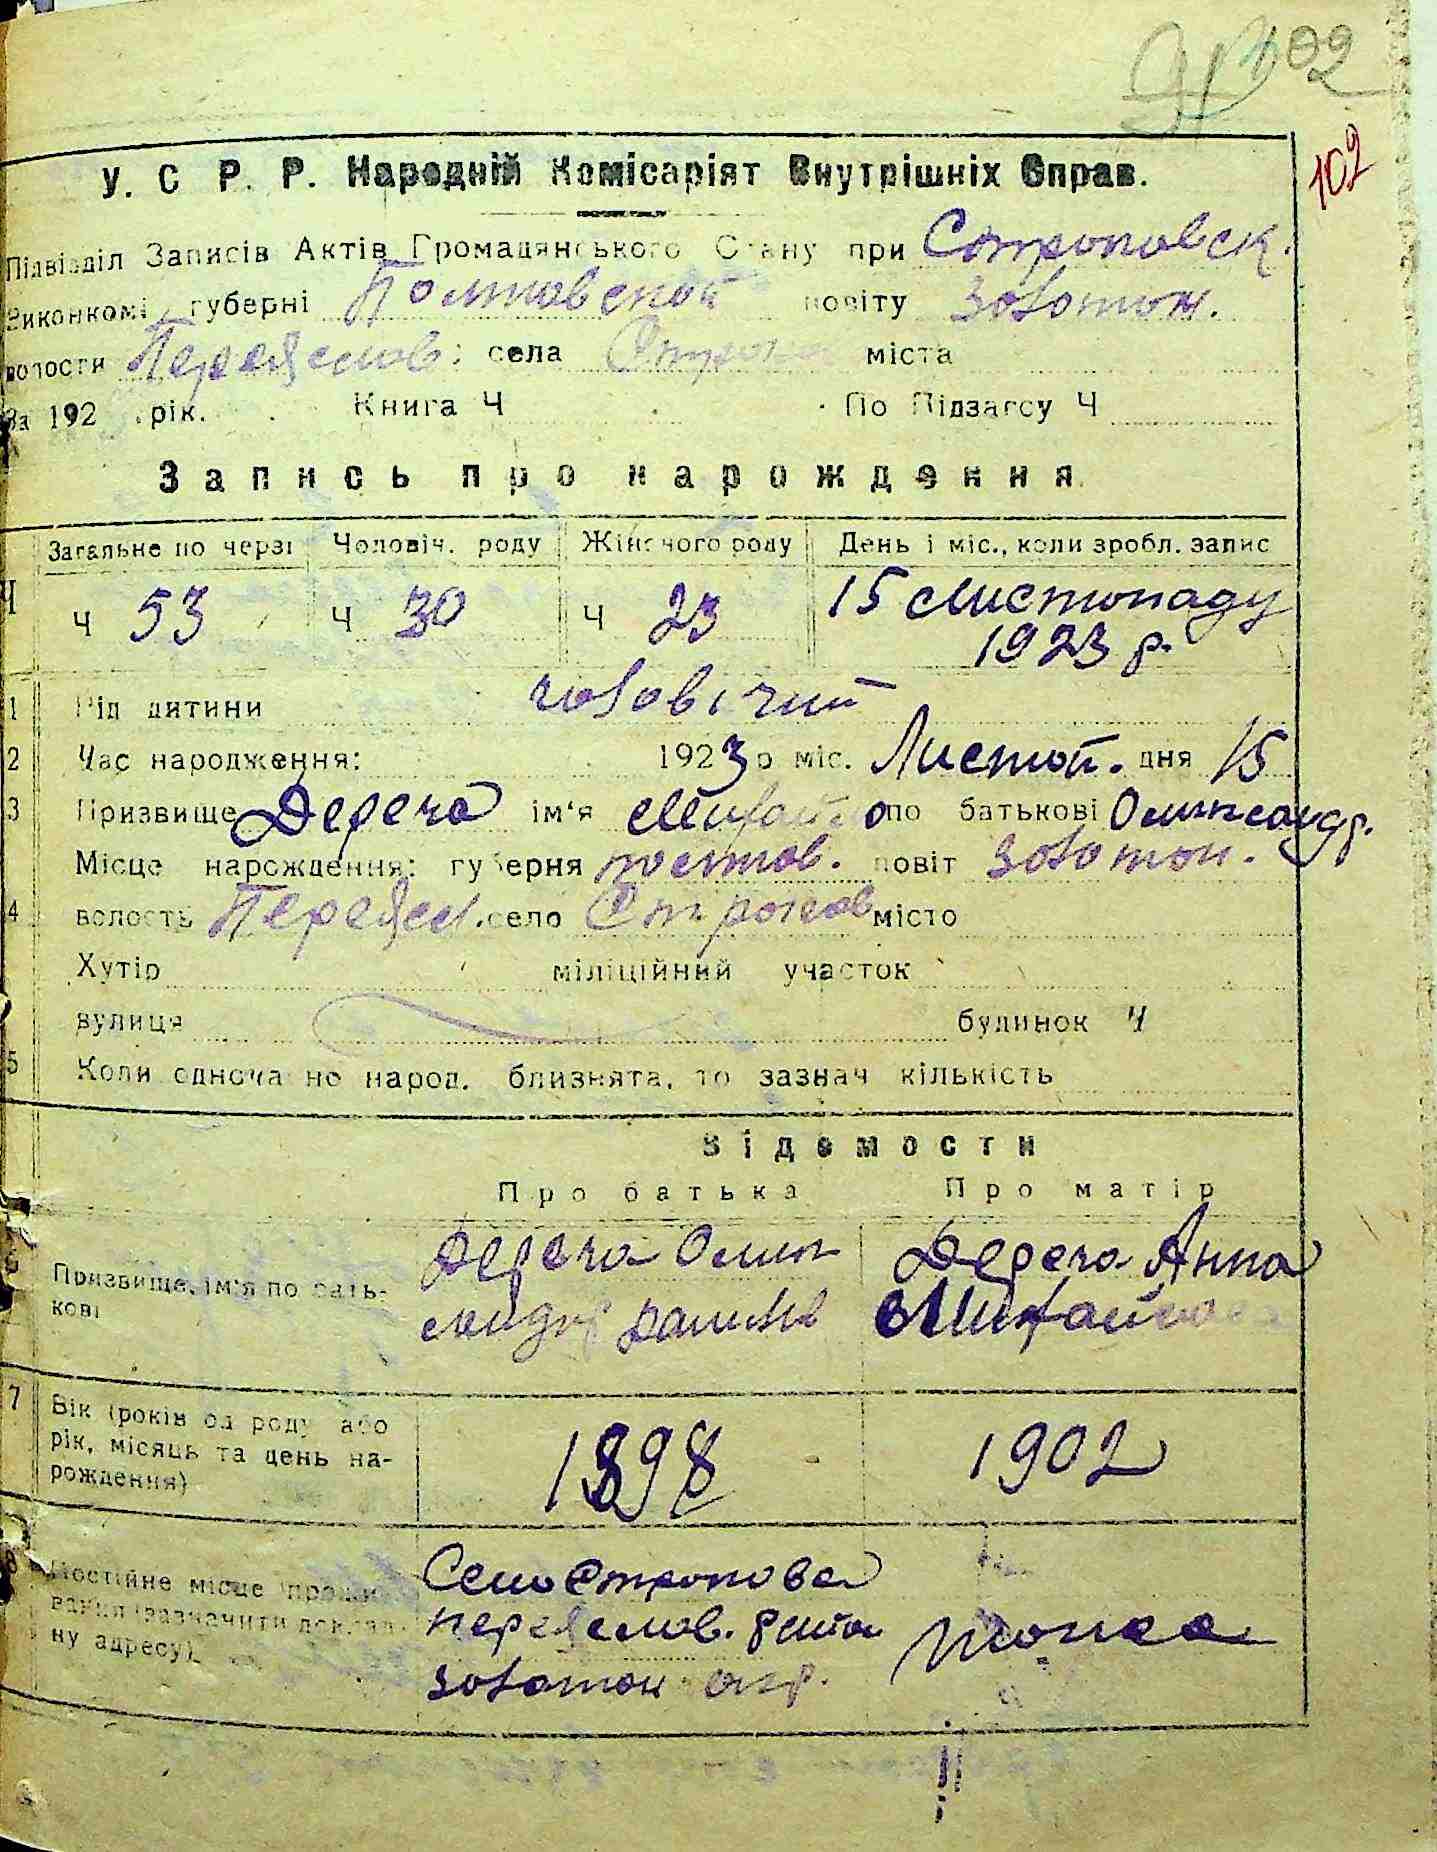 102
102
У. С. Р. Р. Народній Комісаріят Внутрішніх Справ.
Підвідділ Записів Актів Громадянського Стану при Строковск.
Виконкомі, губерні Полтавской повіту Золотон.
волости Переяслов. села Строко міста
За 192 рік. Книга Ч По Підзагсу Ч
Запись про народження
Загальне по черзі Чоловіч. роду Жіночого роду День і міс., коли зробл. запис
Ч Ч 53 Ч 30 Ч 23 15 Листопаду
1923 р.
1 Рід дитини чоловічий
2 Час народження: 1923 р міс. Листоп. дня 15
3 Призвище Дереча ім'я Михайло по батькові Олександр.
Місце народження: губерня Полтов. повіт Золотон.
4 волость Переясл. село Строков місто
Хутір міліційний участок
вулиця будинок Ч
5 Коли одноча но народ. близнята, то зазнач кількість
Відомости
Про батька Про матір
6 Призвище, ім'я по бать- Дереча Олек Дереча Анна
кові сандр Михайловна
7 Вік (років од роду або 1898 1902
рік, місяць та день на-
рождення)
8 Постійне місце прожи- Село Строкова
вання (зазначити доклад- переяслов. району тоже
ну адресу) золотон окр.